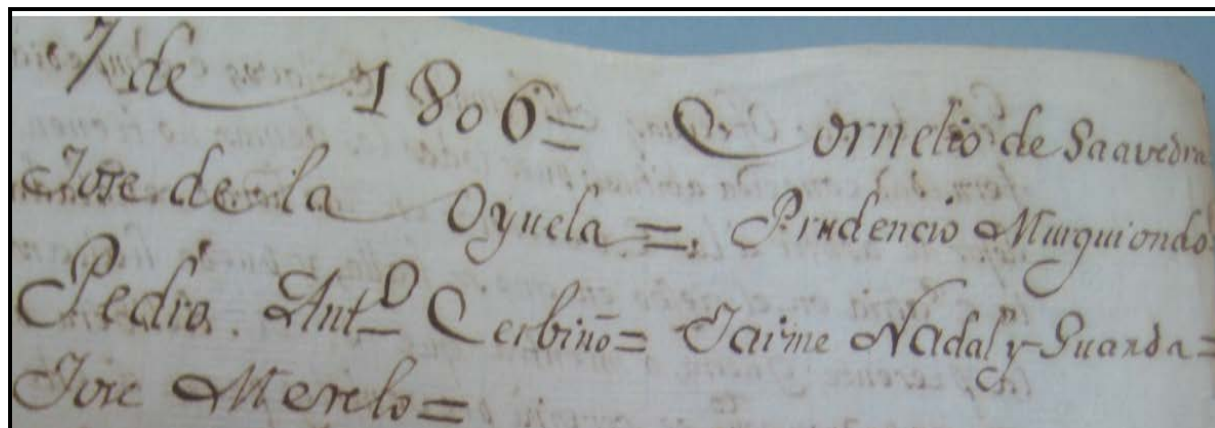 7 de 1806= Cornelio de Saavedra
Jose de la Oyuela=, Prudencio Murguiondo=
Pedro. Antº Cerbiño= Jaime Nadal y Guarda=
Jose Merelo=